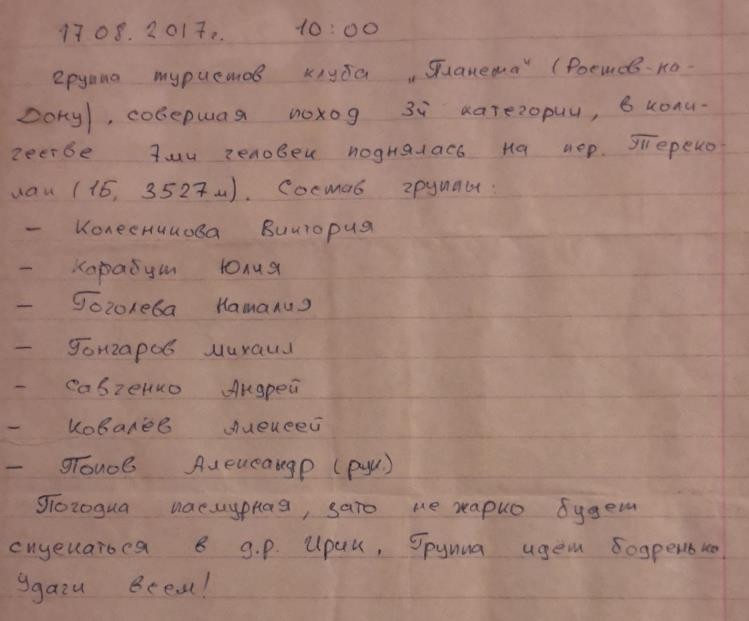 17.08.2017г. 10:00
Группа туристов клуба „Планета" (Ростов-на-
Дону), совершая поход 3й категории, в коли-
честве 7ми человек поднялась на пер. Тереко-
лан (1Б, 3527м). Состав группы:
– Колесникова Виктория
– Карабут Юлия
– Гоголева Наталия
– Гончаров Михаил
– Савченко Андрей
– Ковалёв Алексей
– Попов Александр (рук.)
Погодка пасмурная, зато не жарко будет
спускаться в д.р. Ирик. Группа идёт бодренько.
Удачи всем!